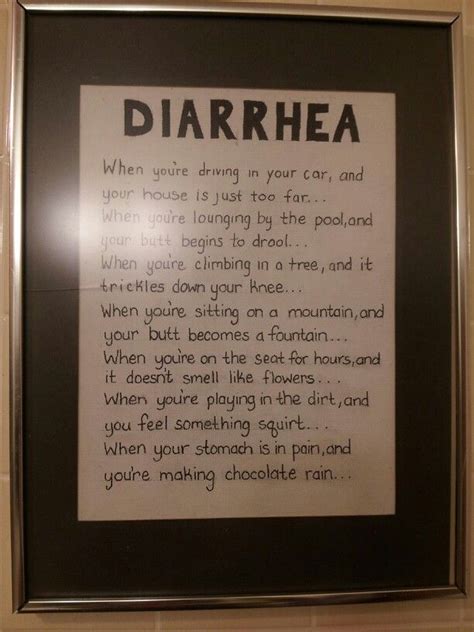 DIARRHEA
When you're driving in your car, and
your house is just too far...
When you're lounging by the pool,and
your butt begins to drool...
When you're climbing in a tree, and it
trickles down your knee...
When you're sitting on a mountain,and
your butt becomes a fountain...
When you're on the seat for hours,and
it doesn't smell like flowers...
When you're playing in the dirt,and
you feel something squirt...
When your stomach is in pain,and
you're making chocolate rain...